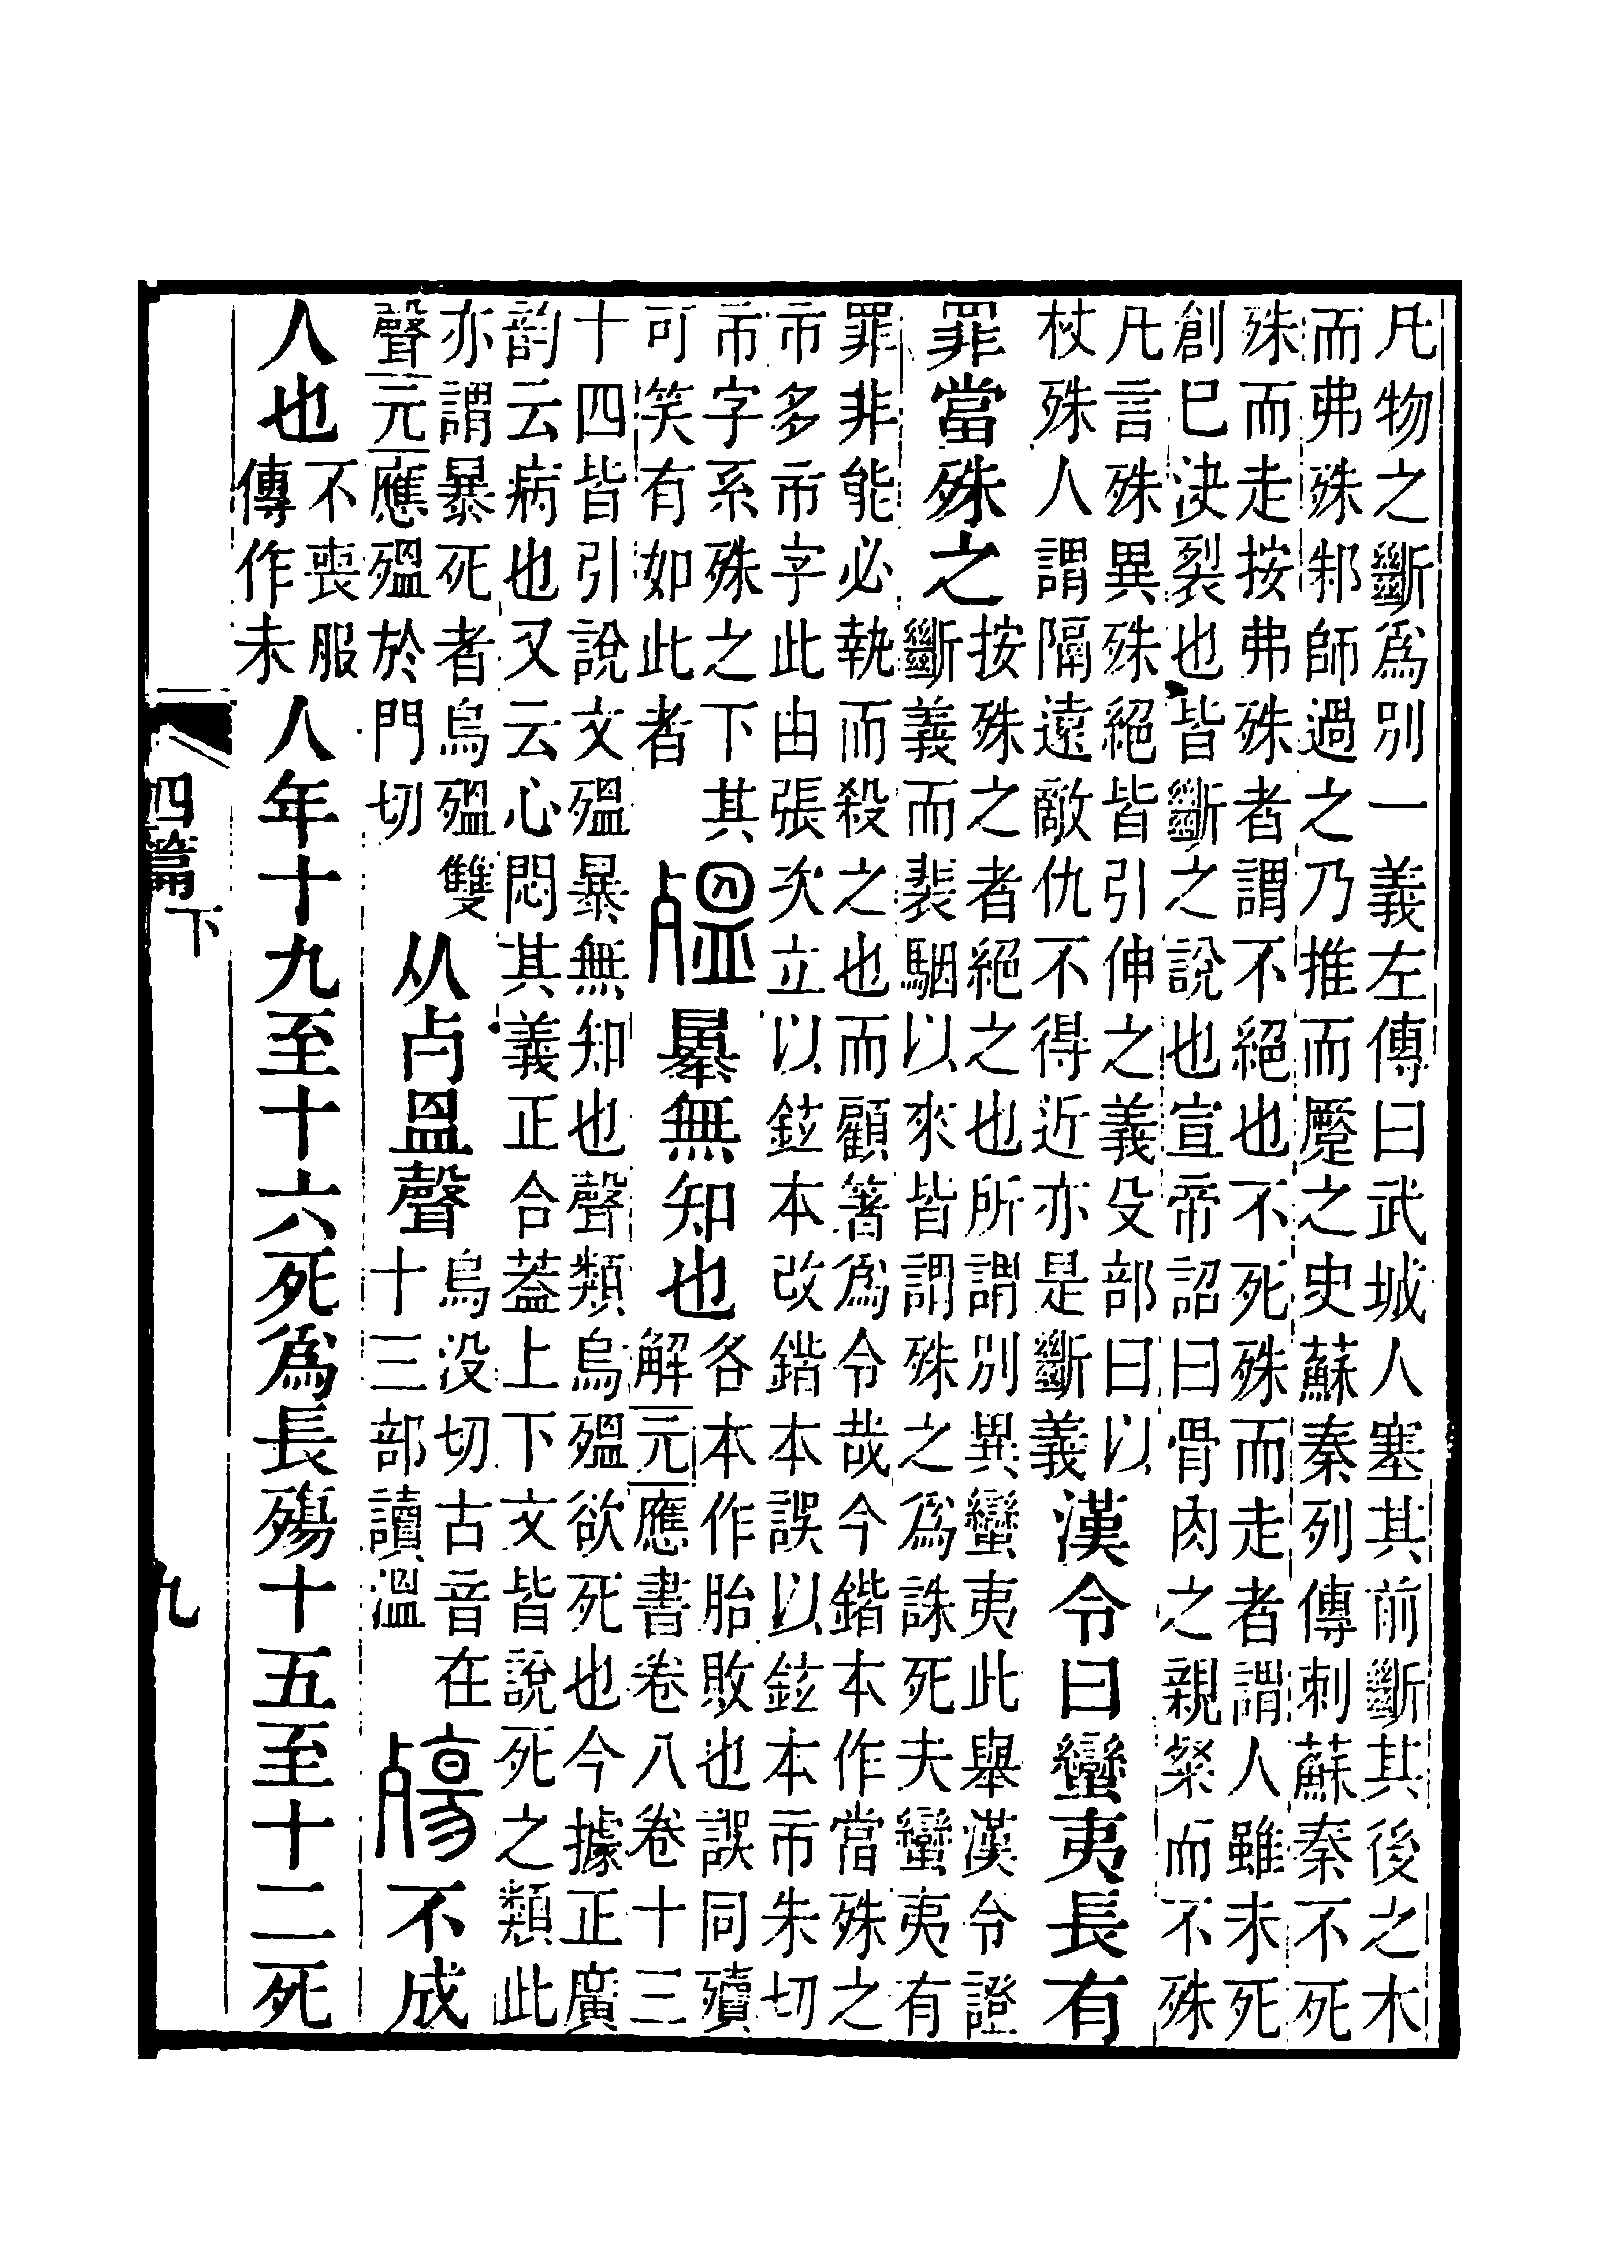 凡物之斷爲別一義左傳曰武城人塞其前斷其後之木
而弗殊邾師過之乃推而蹷之史蘇秦列傳刺蘇秦不死
殊而走按弗殊者謂不絕也不死殊而走者謂人雖未死
創巳決裂也皆斷之說也宣帝詔曰骨肉之親粲而不殊
凡言殊異殊絕皆引伸之義殳部曰以
杖殊人謂隔遠敵仇不得近亦是斷義
漢令曰蠻夷長有
罪當殊之
按殊之者絕之也所謂別異蠻夷此舉漢令證
斷義而裴駰以來皆謂殊之爲誅死夫蠻夷有
罪非能必執而殺之也而顧箸爲令哉今鍇本作當殊之
市多市字此由張次立以鉉本改鍇本誤以鉉本市朱切
市字系殊之下其
可笑有如此者
殟
㬥無知也
各本作胎敗也誤同殰
解元應書卷八卷十三
十四皆引說文殟暴無知也聲類烏殟欲死也今據正廣
韵云病也又云心悶其義正合葢上下文皆說死之類此
亦謂暴死者烏殟雙
聲元應殟於門切
从歺𥁕聲
烏没切古音在
十三部讀溫
殤
不成
人也
不喪服
傳作未
人年十九至十六死爲長殤十五至十二死
四篇下
九